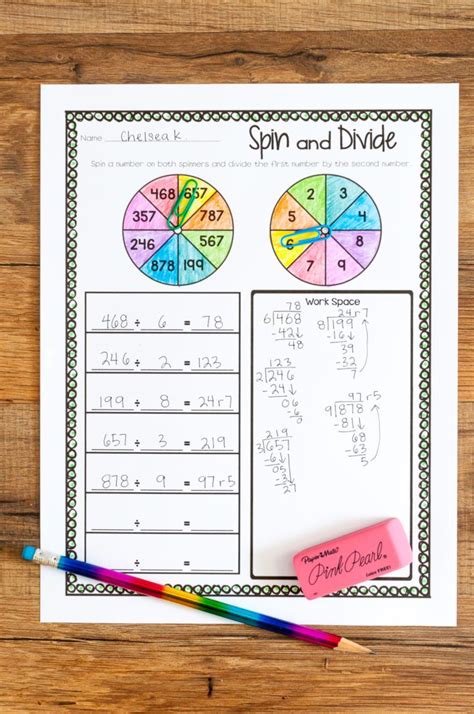 Name: Chelsea K.
Spin and Divide
Spin a number on both spinners and divide the first number by the second number.
468 657 787 567 199 878 246 357
2 3 4 8 9 7 6 5
468 ÷ 6 = 78
246 ÷ 2 = 123
199 ÷ 8 = 24r7
657 ÷ 3 = 219
878 ÷ 9 = 97r5
÷ =
÷ =
Work Space
78
6 468
-42
48
24r7
8 199
-16
39
-32
7
123
2 246
-24
06
-6
0
97r5
9 878
-81
68
-63
5
219
3 657
-6
05
-3
27
Paper Mate
Pink Pearl